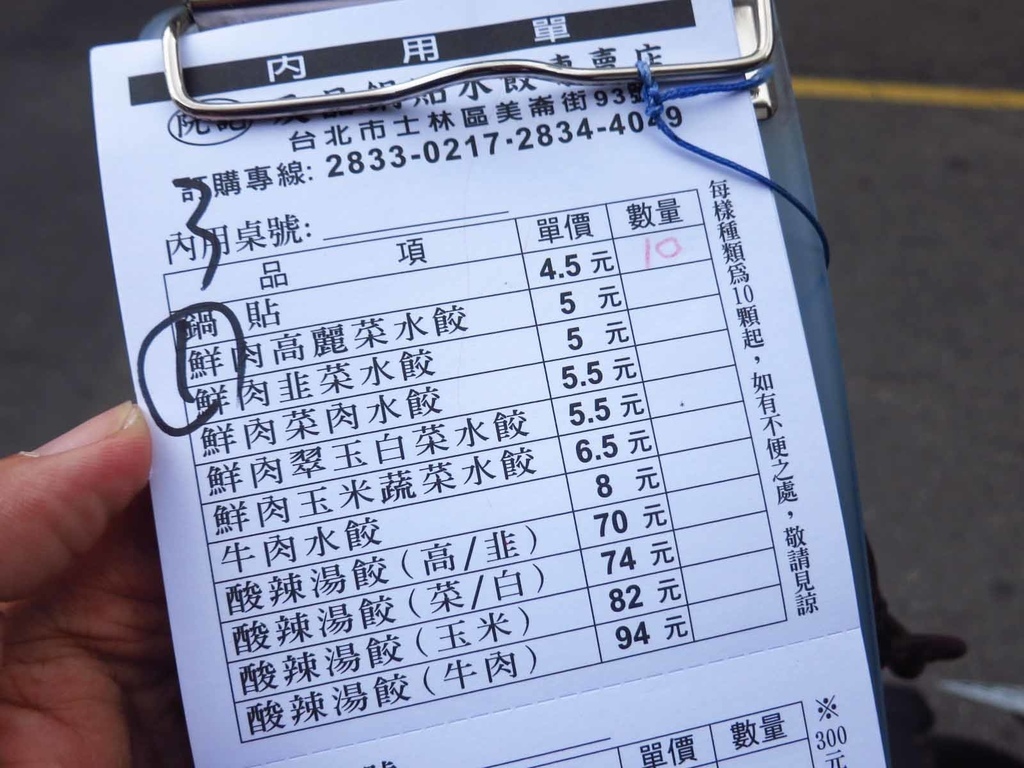 內用單
鍋貼水餃專賣店
台北市士林區美崙街93號
訂購專線: 2833-0217·2834-4049
3
內用桌號:
品項 單價 數量
鍋貼 4.5元 10
鮮肉高麗菜水餃 5元
鮮肉韭菜水餃 5元
鮮肉菜肉水餃 5.5元
鮮肉翠玉白菜水餃 5.5元
鮮肉玉米蔬菜水餃 6.5元
牛肉水餃 8元
酸辣湯餃(高/韭) 70元
酸辣湯餃(菜/白) 74元
酸辣湯餃(玉米) 82元
酸辣湯餃(牛肉) 94元
1
每樣種類為10顆起，如有不便之處，敬請見諒
單價 數量
※300元